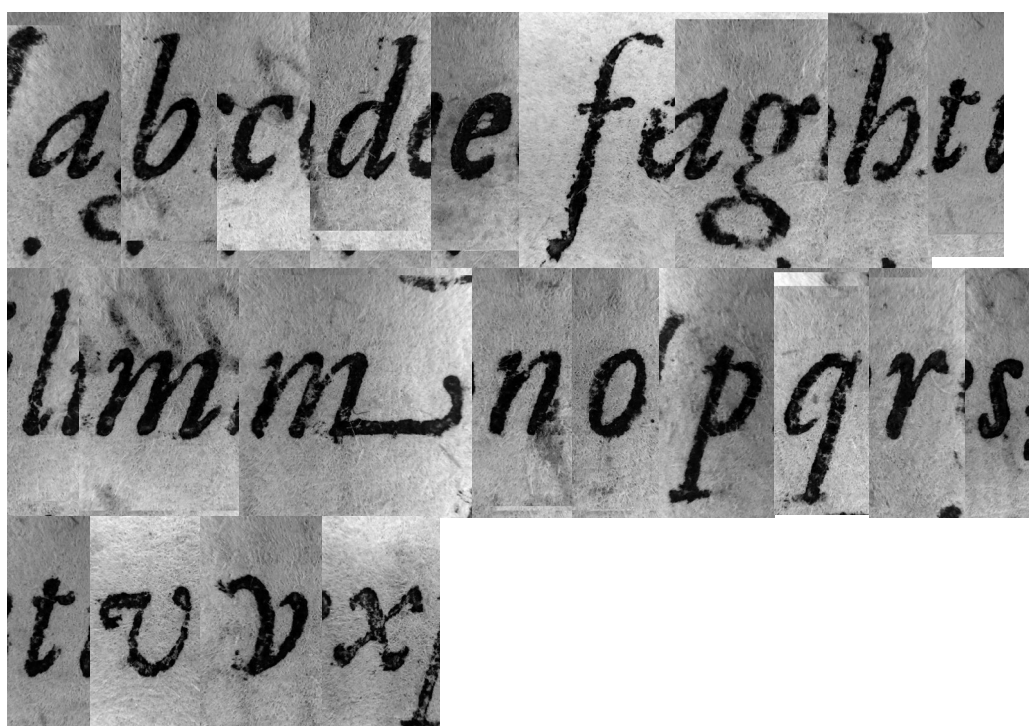 a b c d e f g h t
l m m n o p q r s
t v v x